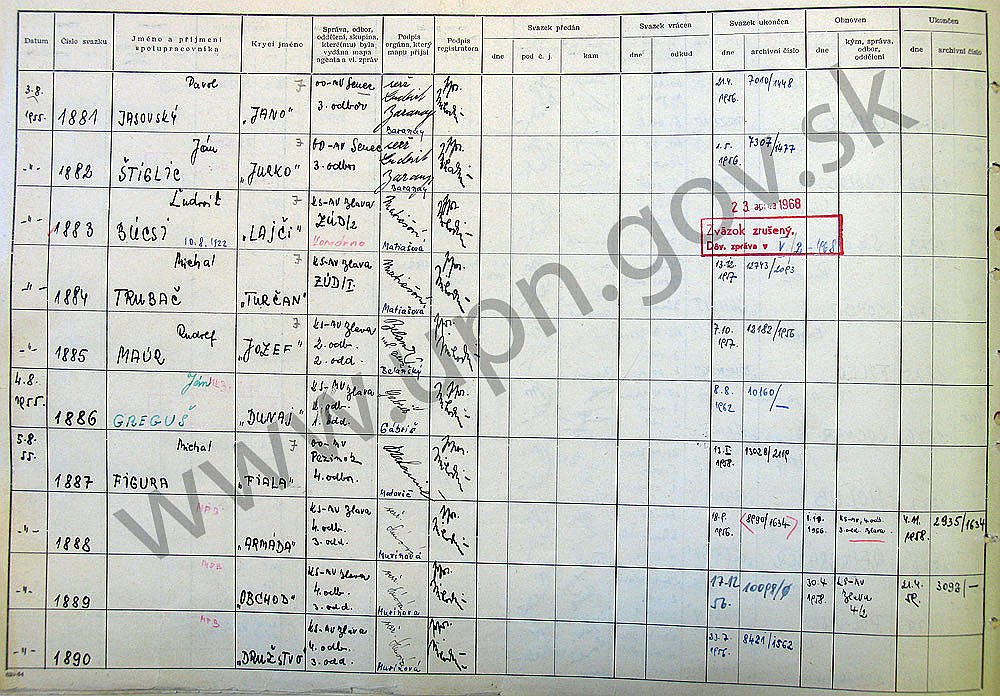 Datum
Číslo svazku
Jméno a příjmení spolupracovníka
Krycí jméno
Správa, odbor, oddělení, skupina, které(mu) byla vydána mapa agenta a vl. zpráv
Podpis orgána, který mapu přijal
Podpis registratora
Svazek předán
dne
pod č. j.
kam
Svazek vrácen
dne
odkud
Svazek ukončen
dne
archivní číslo
Obnoven
dne
kým, správa, odbor, oddělení
Ukončen
dne
archivní číslo
3.8. 1955. 1881 Pavol JASOVSKÝ „JANO" 7 OO-MV Senec 3. odbor Baranay 21.4. 1956. 7010/1448
-"- 1882 Ján ŠTIGLIC „JURKO" 7 OO-MV Senec 3. odbor Baranay 1.5. 1956. 7307/1477
-"- 1883 Ľudovít BÚCSI 10.8.1922 „LAJČI" 7 KS-MV Blava ZÚD/2 Komárno Matiašová
23 apríla 1968
Zväzok zrušený.
Dôv. zpráva v V/2-1968
-"- 1884 Michal TRUBAČ „TURČAN" 7 KS-MV Blava ZÚD/I Matiašová 13.12. 1957. 12743/2093
-"- 1885 Rudolf MAÚR „JOZEF" 7 KS-MV Blava 2. odb. 2. odd. Belanský 7.10. 1957. 12182/1956
4.8. 1955. 1886 Ján GREGUŠ „DUNAJ" KS-MV Blava 2. odb. 1. odd. Gábriš 8.8. 1962 10160/—
5.8. 55. 1887 Michal FIGURA „FIALA" 7 OO-MV Pezinok 4. odbor. Matovič 13.I 1958. 13028/2119
-"- 1888 MPB „ARMÁDA" KS-MV Blava 4. odb. 3. odd. Murínová 18.9. 1956. 8990/1634 1.10. 1956. KS-MV, 4. odb. 3. odd. Blava 4.11. 1958. 2935/1634
-"- 1889 MPB „OBCHOD" KS-MV Blava 4. odb. 3. odd. Murínova 17.12 56. 10098/0 30.4. 1958. KS-MV Blava 4/2 21.4. 59. 3093/—
-"- 1890 MPB „DRUŽSTVO" KS-MV Blava 4. odb. 3. odd. Murínová 23.7. 1956. 8421/1562
www.upn.gov.sk